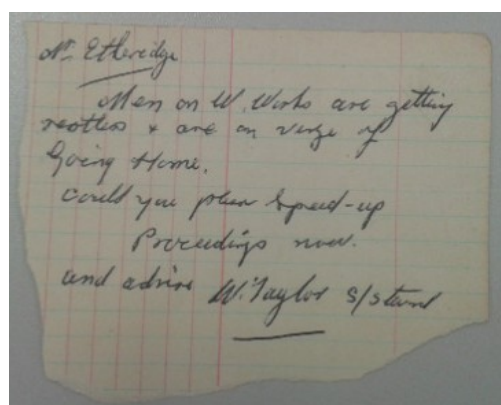 Mr. Etheridge
Men on W. Works are getting
restless & are on verge of
Going Home.
could you please Speed-up
Proceedings now.
and advise W. Taylor S/Steward